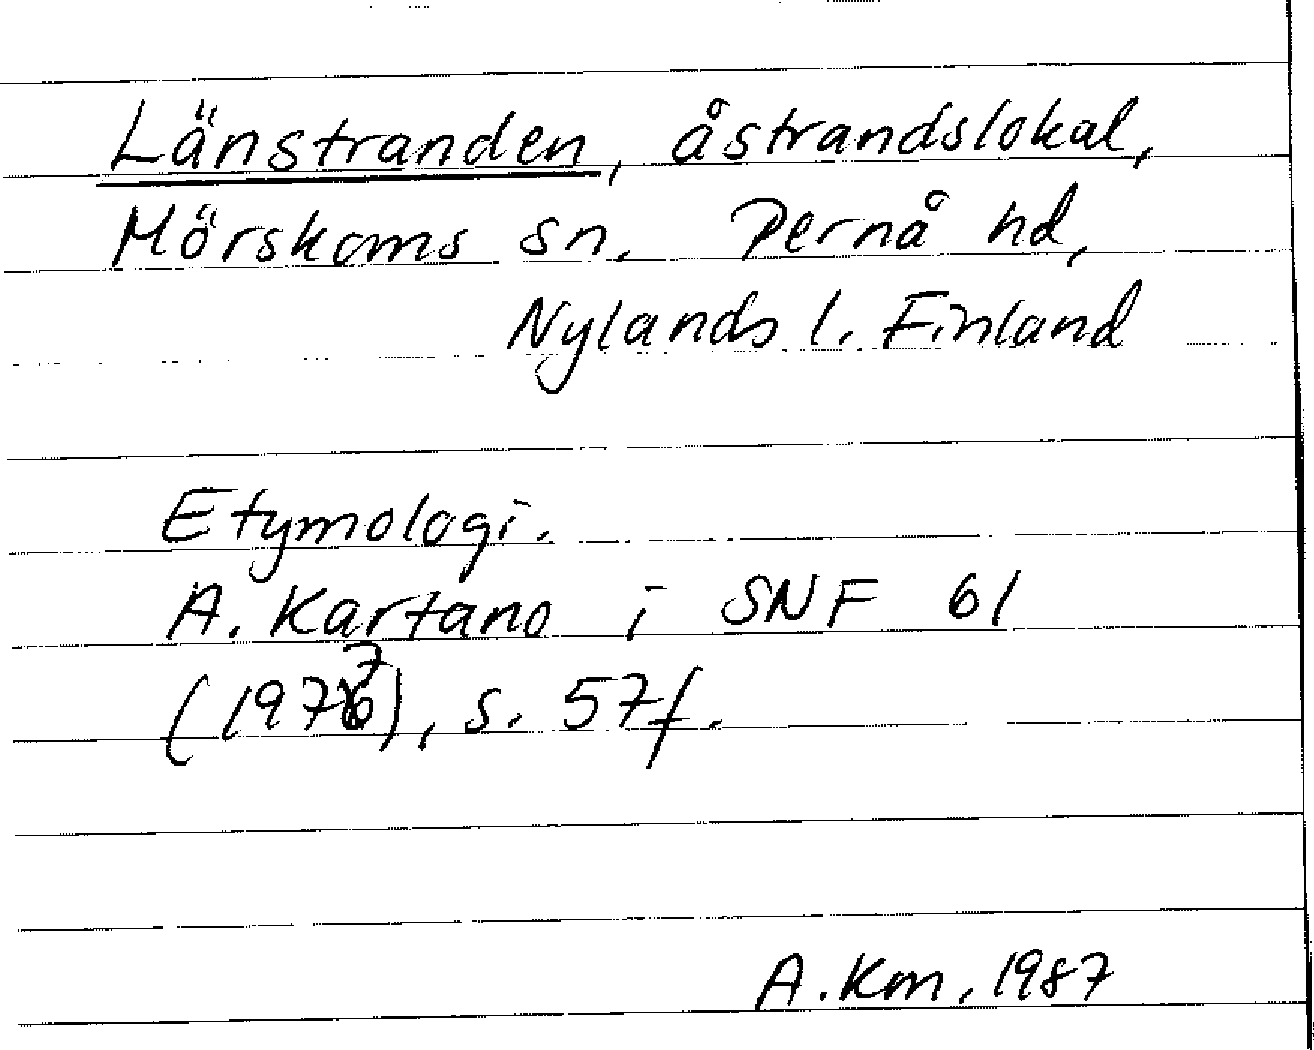 Länstranden, åstrandslokal,
Mörskoms sn, Pernå hd,
Nylands l. Finland
Etymologi.
A. Kartano i SNF 61
(1977), s. 57f.
A.Km, 1987